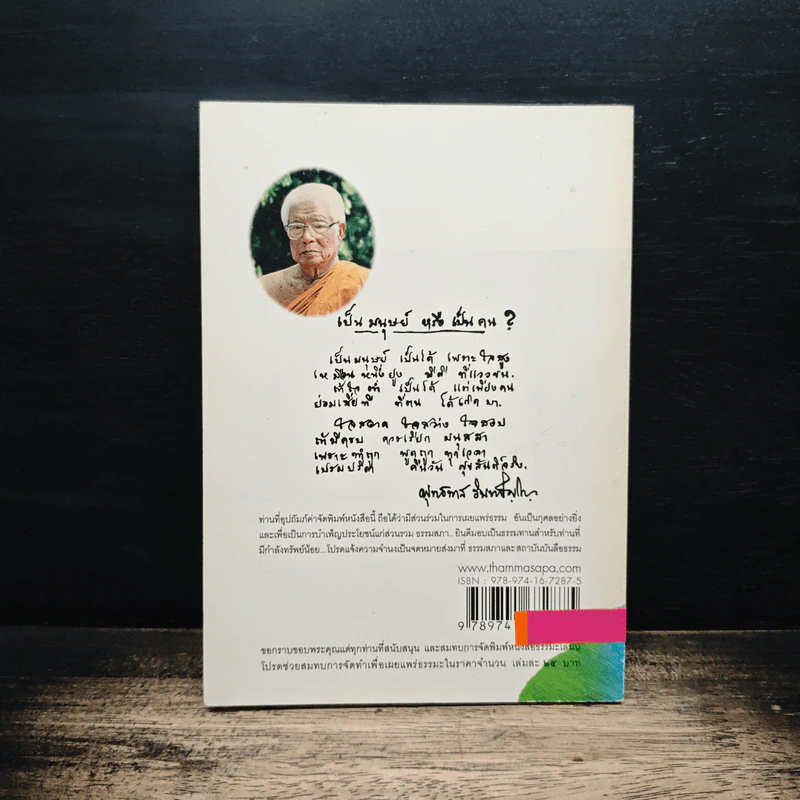 เป็นมนุษย์ หรือเป็นคน ?
เป็นมนุษย์ เป็นได้ เพราะใจสูง
เหมือนหนึ่งยูง มีดี ที่แววขน.
ถ้าใจต่ำ เป็นได้ แต่เพียงคน
ย่อมเสียที ที่ตน ได้เกิดมา.
ใจสอาด ใจสว่าง ใจสงบ
ถ้ามีครบ ควรเรียก มนุสสา
เพราะทำถูก พูดถูก ทุกเวลา
เปรมปรีดา คืนวัน สุขสันต์จริง.
พุทธทาส อินทปัญโญ
ท่านที่อุปถัมภ์ค่าจัดพิมพ์หนังสือนี้ ถือได้ว่ามีส่วนร่วมในการเผยแพร่ธรรม อันเป็นกุศลอย่างยิ่ง
และเพื่อเป็นการบำเพ็ญประโยชน์แก่ส่วนรวม ธรรมสภา...ยินดีมอบเป็นธรรมทานสำหรับท่านที่
มีกำลังทรัพย์น้อย...โปรดแจ้งความจำนงเป็นจดหมายส่งมาที่ ธรรมสภาและสถาบันบันลือธรรม
www.thammasapa.com
ISBN : 978-974-16-7287-5
9 78974
ขอกราบขอบพระคุณแด่ทุกท่านที่สนับสนุน และสมทบการจัดพิมพ์หนังสือธรรมะเล่มนี้
โปรดช่วยสมทบการจัดทำเพื่อเผยแพร่ธรรมะในราคาจำนวน เล่มละ ๒๕ บาท